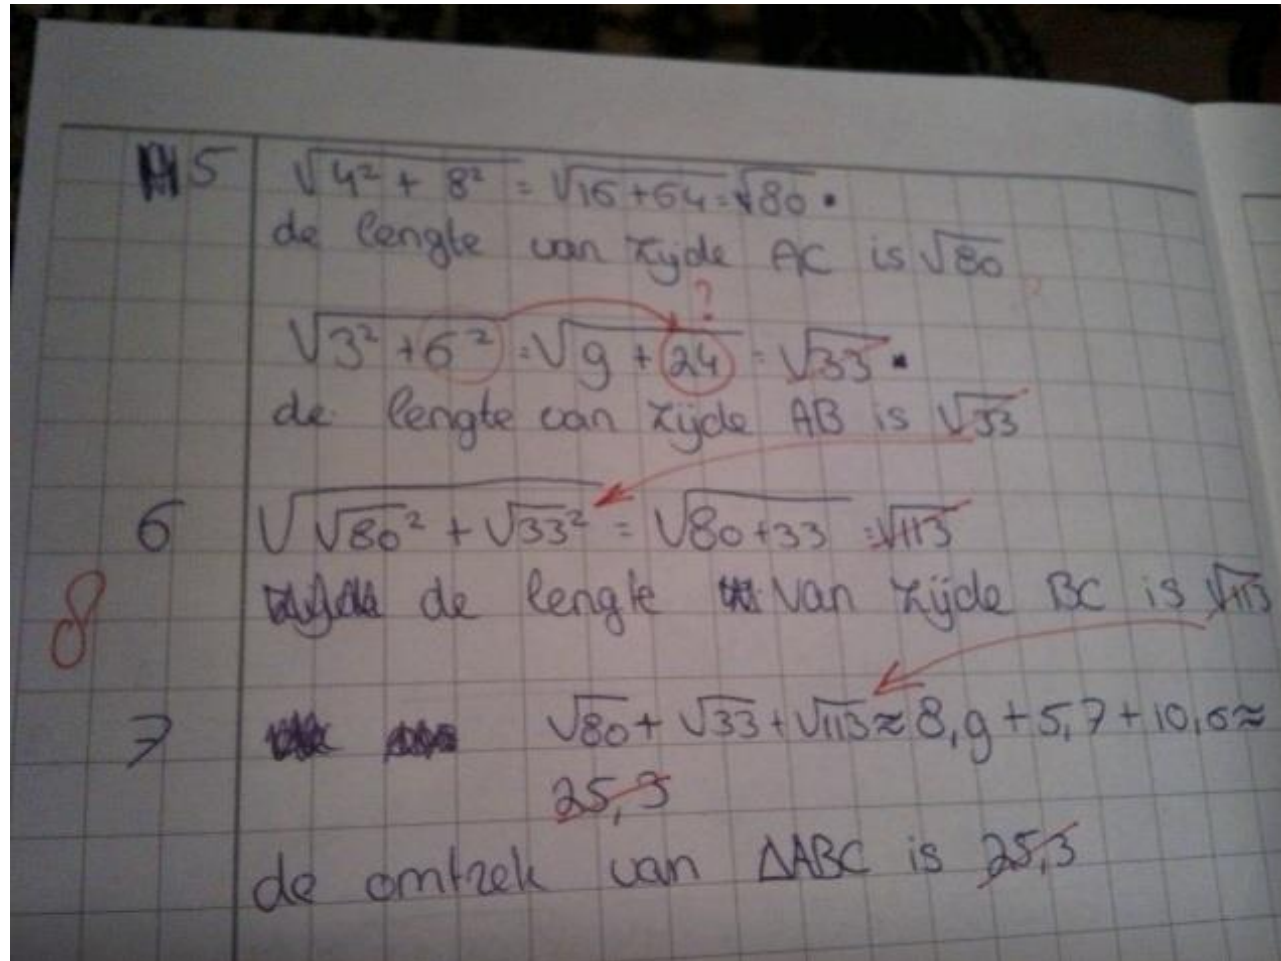 5 √4² + 8² = √16+64 = √80 .
de lengte van zijde AC is √80
?
√3² + 6² = √9 + 24 = √33 .
de lengte van zijde AB is √33
6 √√80² + √33² = √80+33 = √113
8 de lengte van zijde BC is √113
7 √80 + √33 + √113 ≈ 8,9 + 5,7 + 10,6 ≈
25,3
de omtrek van ΔABC is 25,3